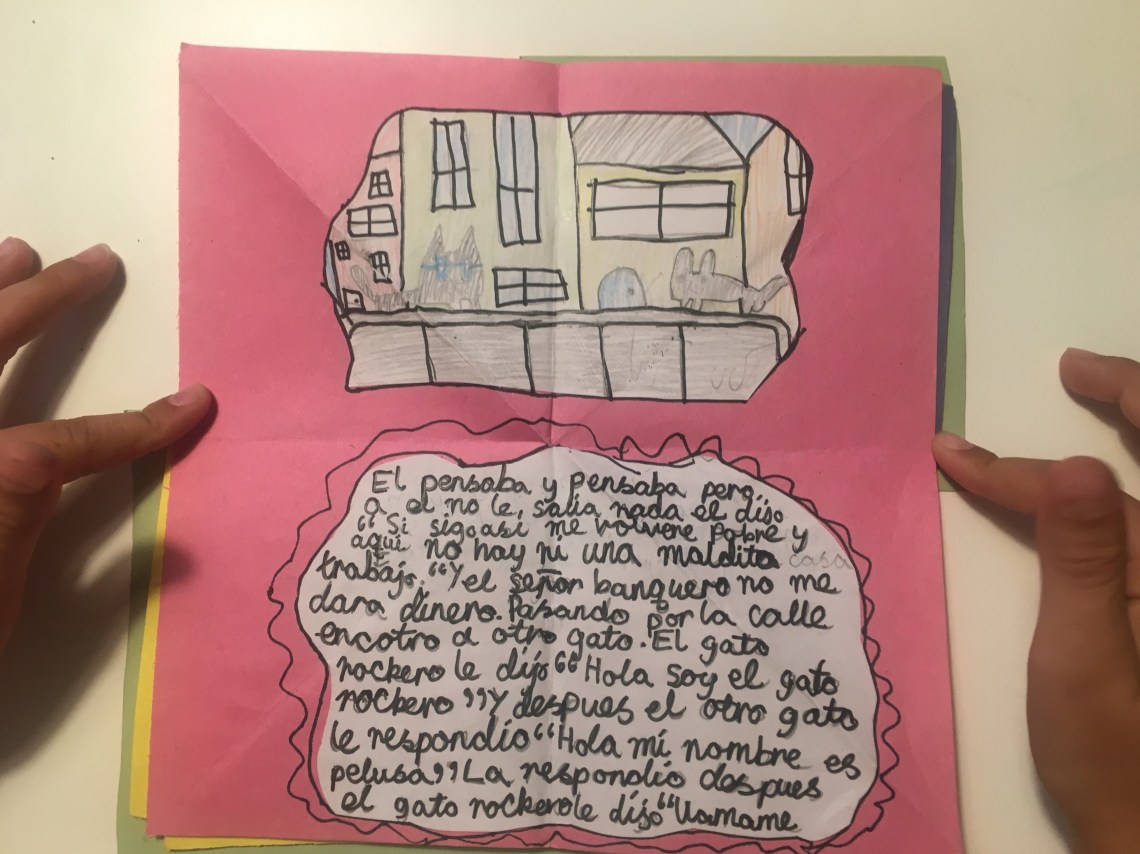 El pensaba y pensaba pero
a el no le, salia nada el dijo
“Si sigo asi me volvere pobre y
aqui no hay ni una maldita casa
trabajo.“Y el señor banquero no me
dara dinero. Pasando por la calle
encotro a otro gato. El gato
rockero le dijo “Hola soy el gato
rockero ”Y despues el otro gato
le respondio “Hola mi nombre es
pelusa” La respondio despues
el gato rockero le dijo “llamame